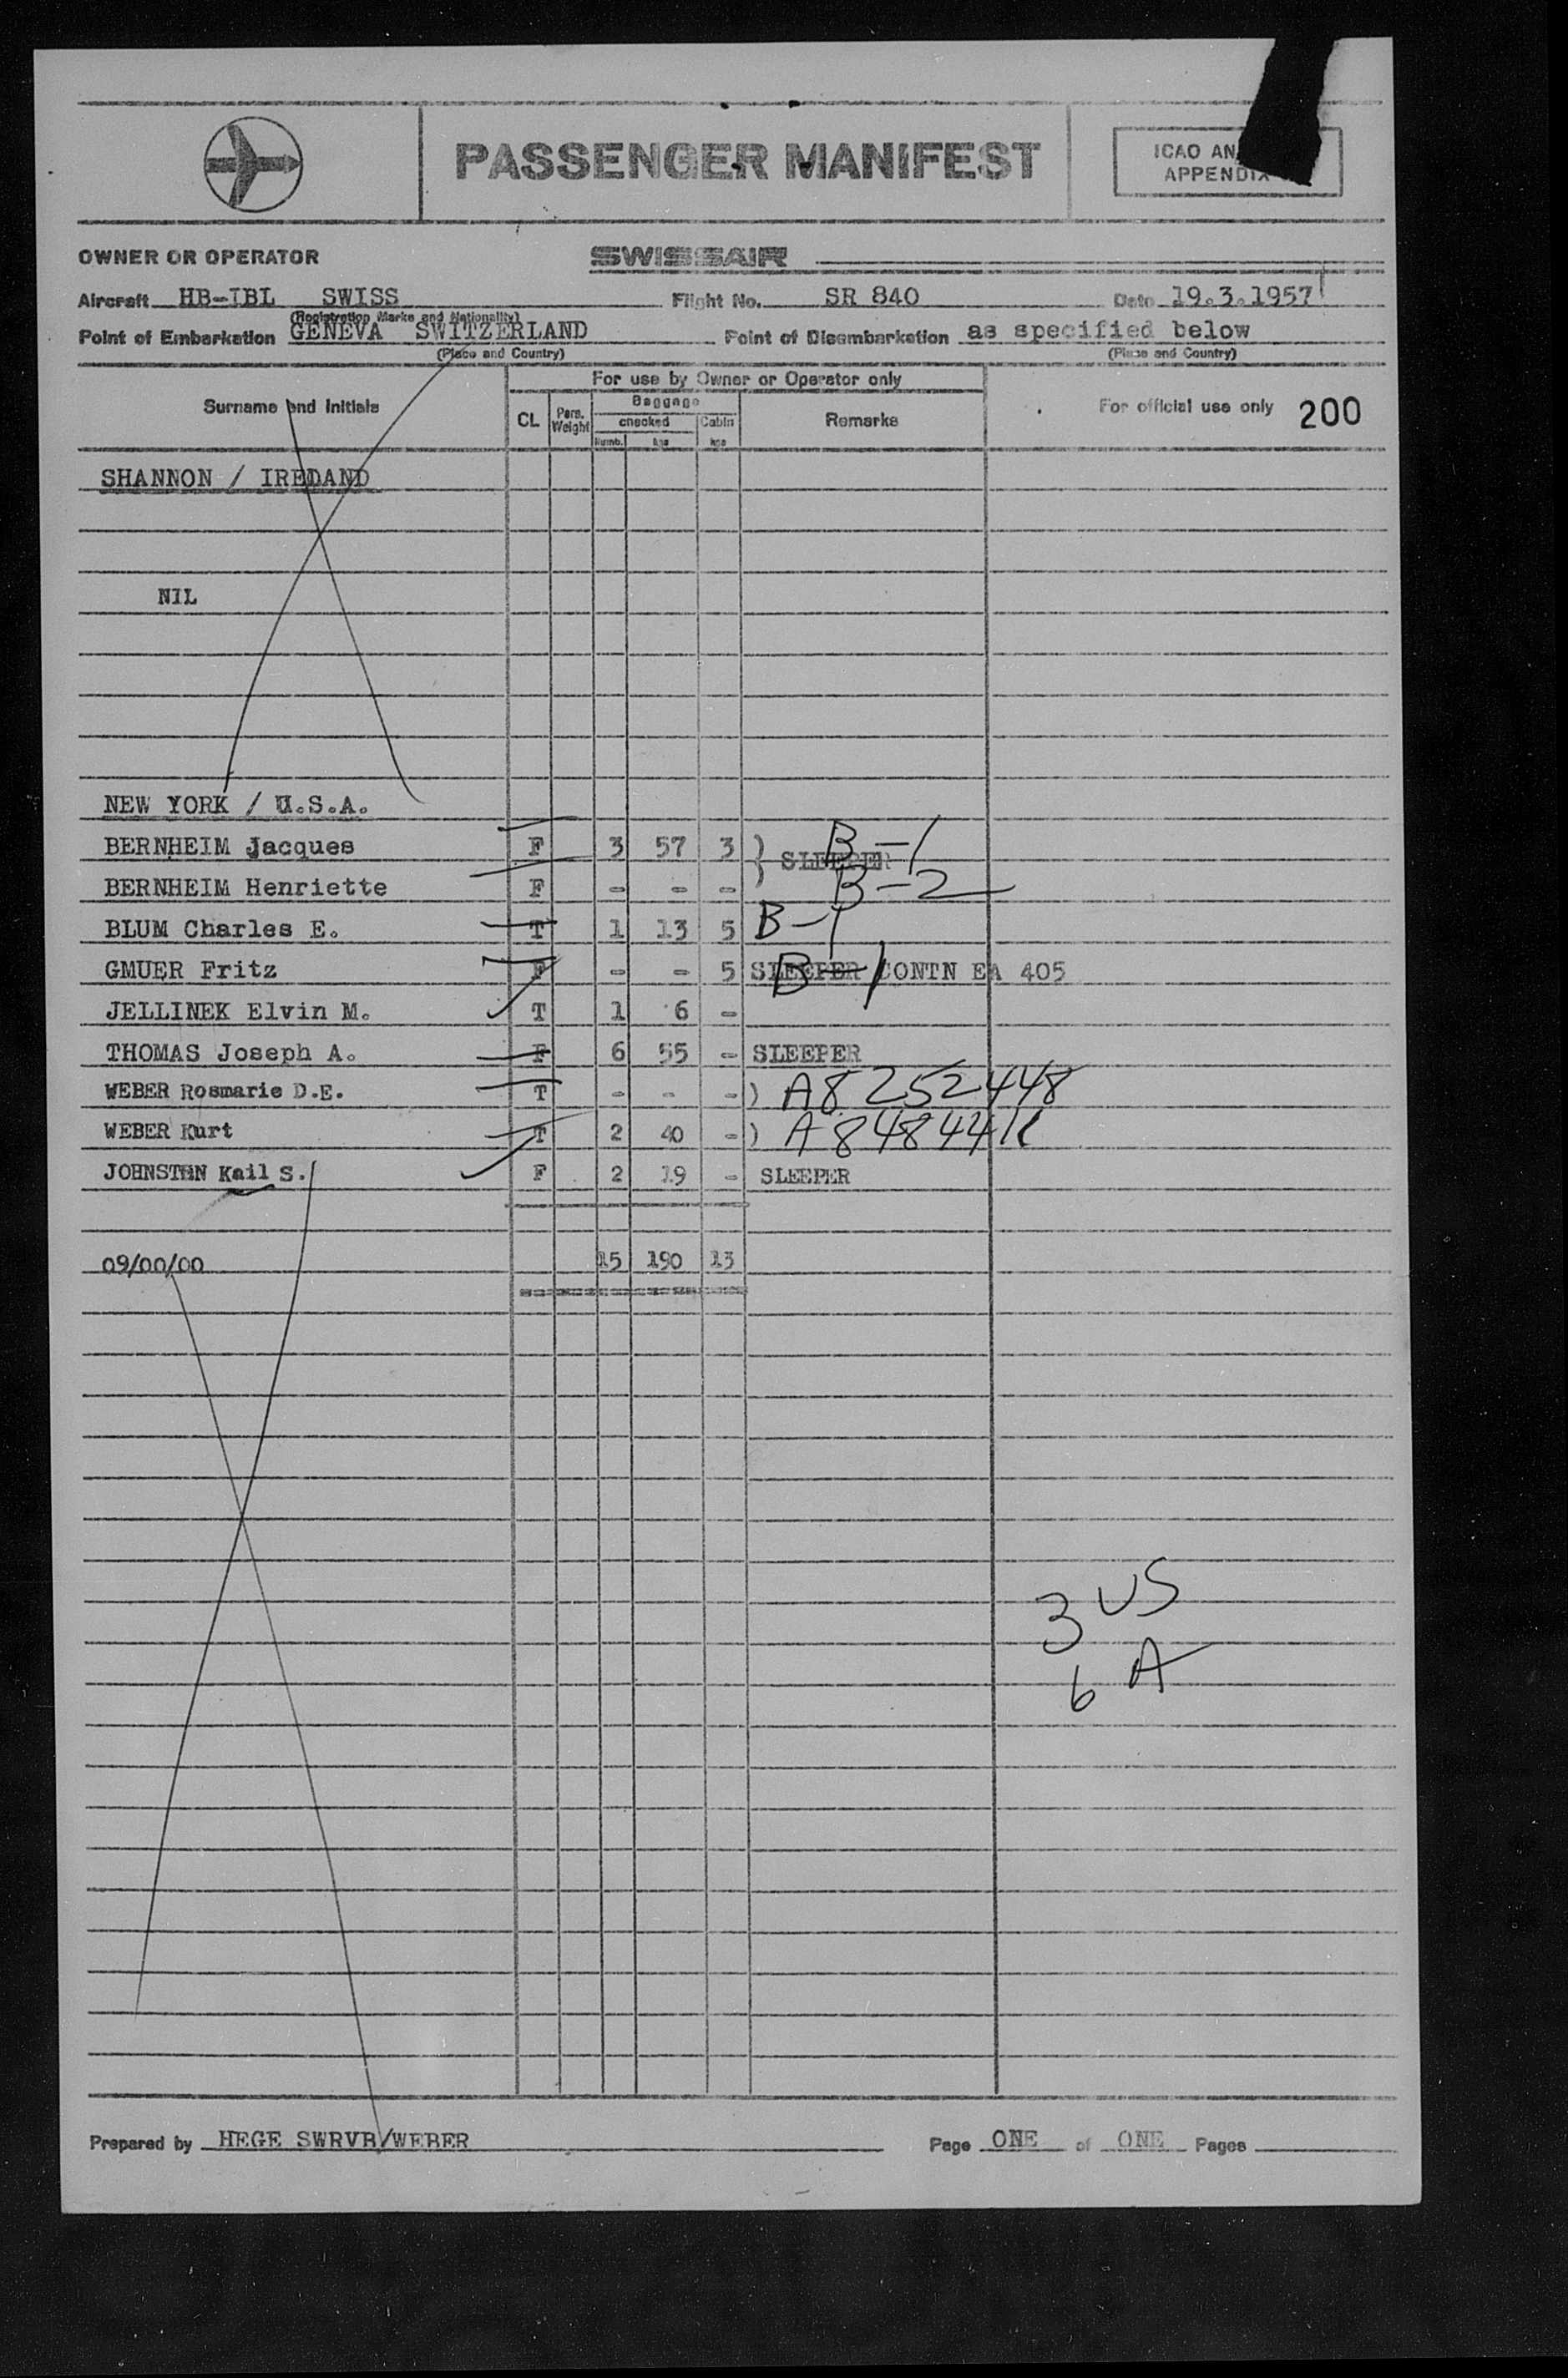 PASSENGER MANIFEST
ICAO AN
APPENDIX
OWNER OR OPERATOR SWISSAIR
Aircraft HB-IBL SWISS Flight No. SR 840 Date 19.3.1957
(Registration Marks and Nationality)
Point of Embarkation GENEVA SWITZERLAND Point of Disembarkation as specified below
(Place and Country) (Place and Country)
For use by Owner or Operator only
Surname and Initials CL Pers. Weight Baggage checked Numb. kgs Cabin kgs Remarks For official use only 200
SHANNON / IREDAND
NIL
NEW YORK / U.S.A.
BERNHEIM Jacques F 3 57 3 ) SLEEPER B-1
BERNHEIM Henriette F - - - ) B-2
BLUM Charles E. T 1 13 5 B-1
GMUER Fritz F - - 5 SLEEPER CONTN EA 405 B-1
JELLINEK Elvin M. T 1 6 -
THOMAS Joseph A. F 6 55 - SLEEPER
WEBER Rosmarie D.E. T - - - ) A8252448
WEBER Kurt T 2 40 - )
JOHNSTON Kail S. F 2 19 - SLEEPER
09/00/00 15 190 13
3 US
6 A
Prepared by HEGE SWRVB/WEBER Page ONE of ONE Pages